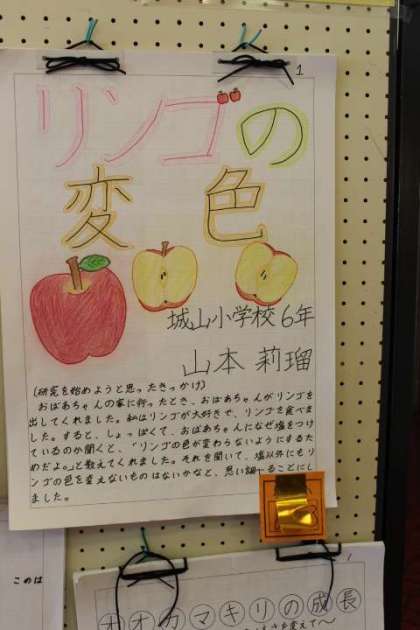 1
リンゴの
変色
城山小学校6年
山本 莉瑠
(研究を始めようと思ったきっかけ)
おばあちゃんの家に行ったとき、おばあちゃんがリンゴを
出してくれました。私はリンゴが大好きで、リンゴを食べま
した。すると、しょっぱくて、おばあちゃんになぜ塩をつけ
ているのか聞くと、「リンゴの色が変わらないようにするた
めだよ。」と教えてくれました。それを聞いて、塩以外にもリ
ンゴの色を変えないものはないかなと、思い調べることにし
ました。
このは
1
オオカマキリの成長
さを変えて〜